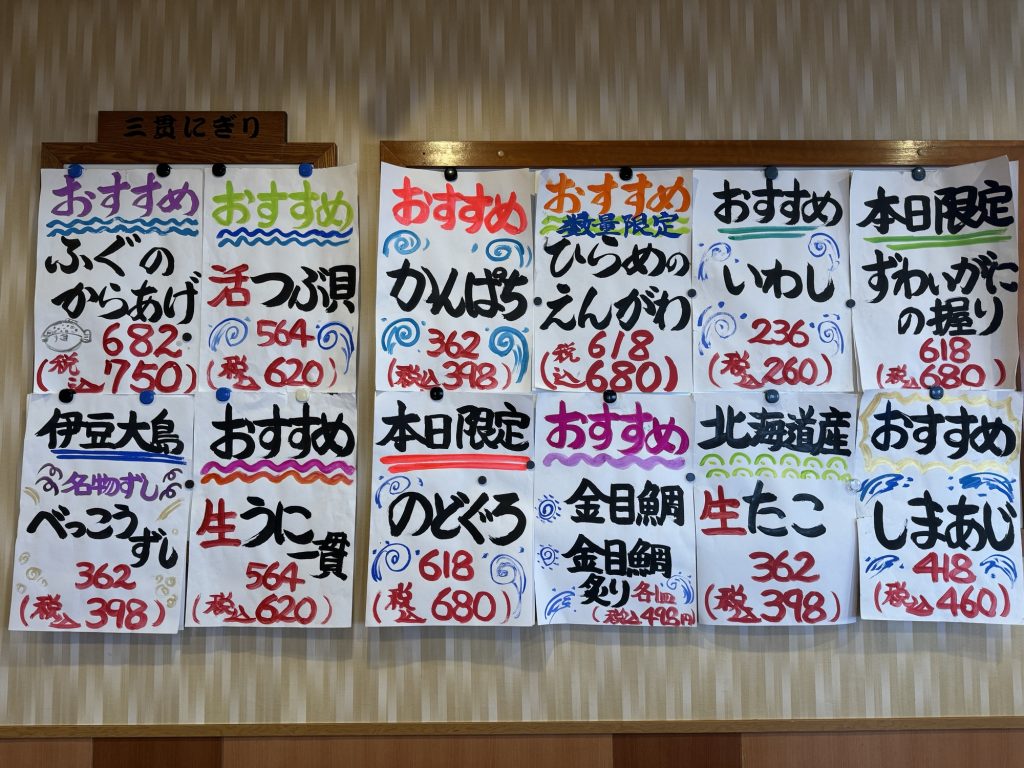 三貫にぎり
おすすめ
ふぐの
からあげ
682
(税込750)
おすすめ
活つぶ貝
564
(税込620)
おすすめ
かんぱち
362
(税込398)
おすすめ
数量限定
ひらめの
えんがわ
618
(税込680)
おすすめ
いわし
236
(税込260)
本日限定
ずわいがに
の握り
618
(税込680)
伊豆大島
名物ずし
べっこう
ずし
362
(税込398)
おすすめ
生うに
一貫
564
(税込620)
本日限定
のどぐろ
618
(税込680)
おすすめ
金目鯛
金目鯛
炙り各1皿
(税込498円)
北海道産
生たこ
362
(税込398)
おすすめ
しまあじ
418
(税込460)